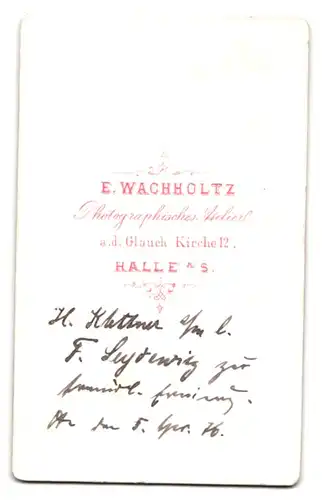 E. WACHHOLTZ
Photographisches Atelier
a.d. Glauch Kirche 12.
HALLE A/S.
H. Klettner s/m l.
F. Seydewitz zur
freundl. Erinnrg.
den 5. Apr. 76.